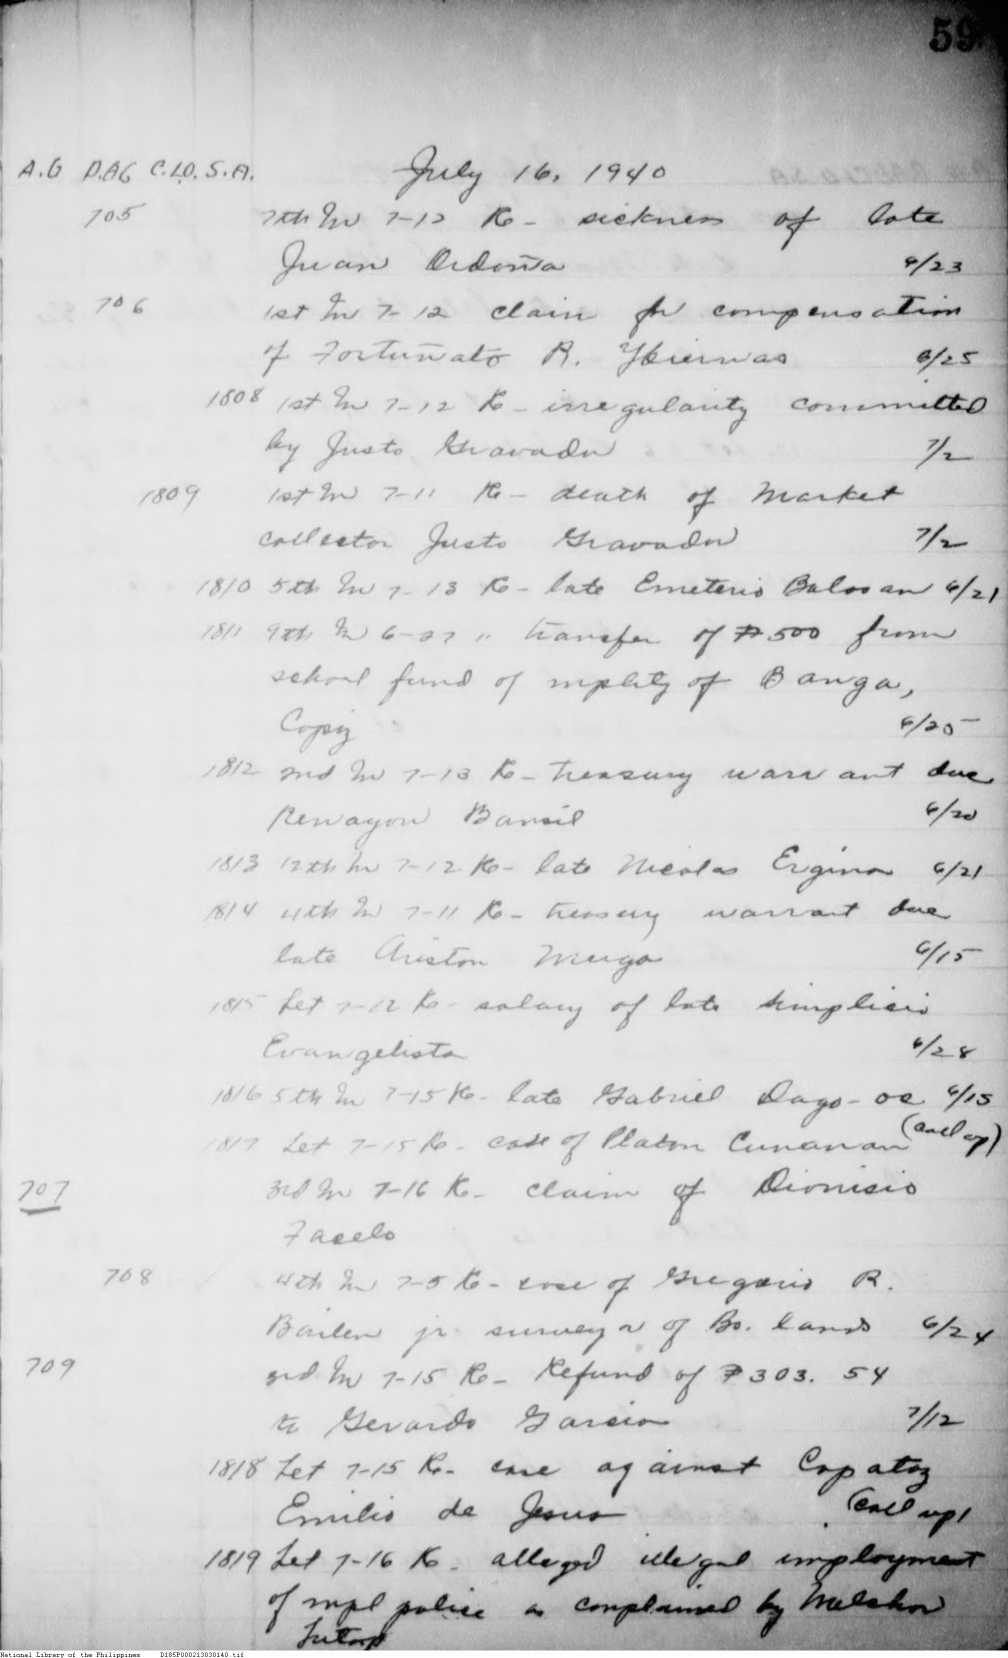 59
A.G D.AG C.I.O. S.A. July 16, 1940
705 7th In 7-12 Re- sickness of late
Juan Ordoña 6/23
706 1st In 7-12 claim for compensation
of Fortunato R. Ybiernas 6/25
1808 1st In 7-12 Re- irregularity committed
by Justo Gravador 7/2
1809 1st In 7-11 Re- death of market
collector Justo Gravador 7/2
1810 5th In 7-13 Re- late Emeterio Balosan 6/21
1811 9th In 6-27 " transfer of ₱500 from
school fund of mplity of Banga,
Capiz 6/25
1812 2nd In 7-13 Re- treasury warrant due
Bansil 6/20
1813 12th In 7-12 Re- late Nicolas Ergina 6/21
1814 4th In 7-11 Re- treasury warrant due
late Ariston 6/15
1815 Let 7-12 Re- salary of late Simplicio
Evangelista 6/28
1816 5th In 7-15 Re- late Gabriel Dago-oc 6/15
1817 Let 7-15 Re- case of Platon Cunanan (call up)
707 3rd In 7-16 Re- claim of Dionisio
Facelo
708 4th In 7-5 Re- case of Gregorio R.
Bailen jr. surveyor of Bu. lands 6/24
709 2nd In 7-15 Re- Refund of ₱303.54
to Gerardo Garcia 7/12
1818 Let 7-15 Re- case against Capataz
Emilio de Jesus (call up)
1819 Let 7-16 Re- alleged illegal employment
of mpl police as complained by Melchor
National Library of the Philippines D185P000213030140.tif